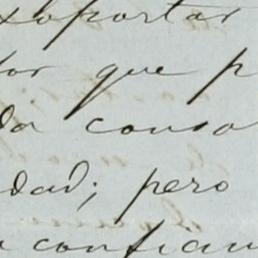 xportar
or que p
da consa
dad; pero
confian